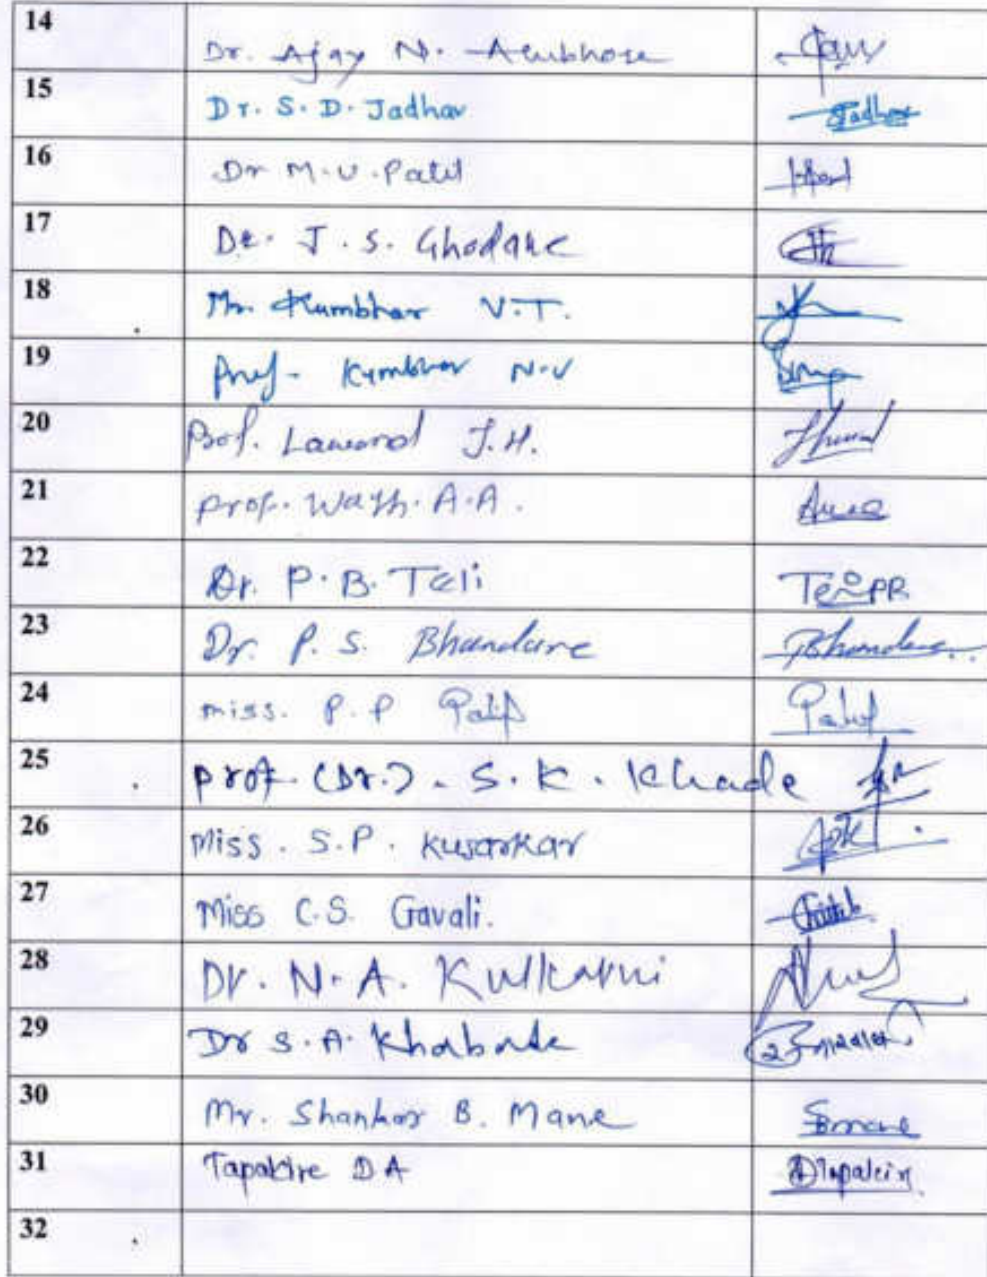 14 Dr. Ajay N. Ambhore
15 Dr. S. D. Jadhav Jadhav
16 Dr M. V. Patil
17 Dr. J. S. Ghodake
18 Mr. Kumbhar V. T.
19 Prof. Kumbhar N. V
20 Prof. Lawand J. H.
21 Prof. Wagh. A. A.
22 Dr. P. B. Teli
23 Dr. P. S. Bhandare Bhandare
24 Miss. P. P Patil Patil
25 Prof. (Dr.). S. K. Khade
26 Miss. S. P. Kusarkar
27 Miss C. S. Gavali.
28 Dr. N. A. Kulkarni
29 Dr S. A. Khabade
30 Mr. Shankar B. Mane SBmane
31 Tapakire D A
32